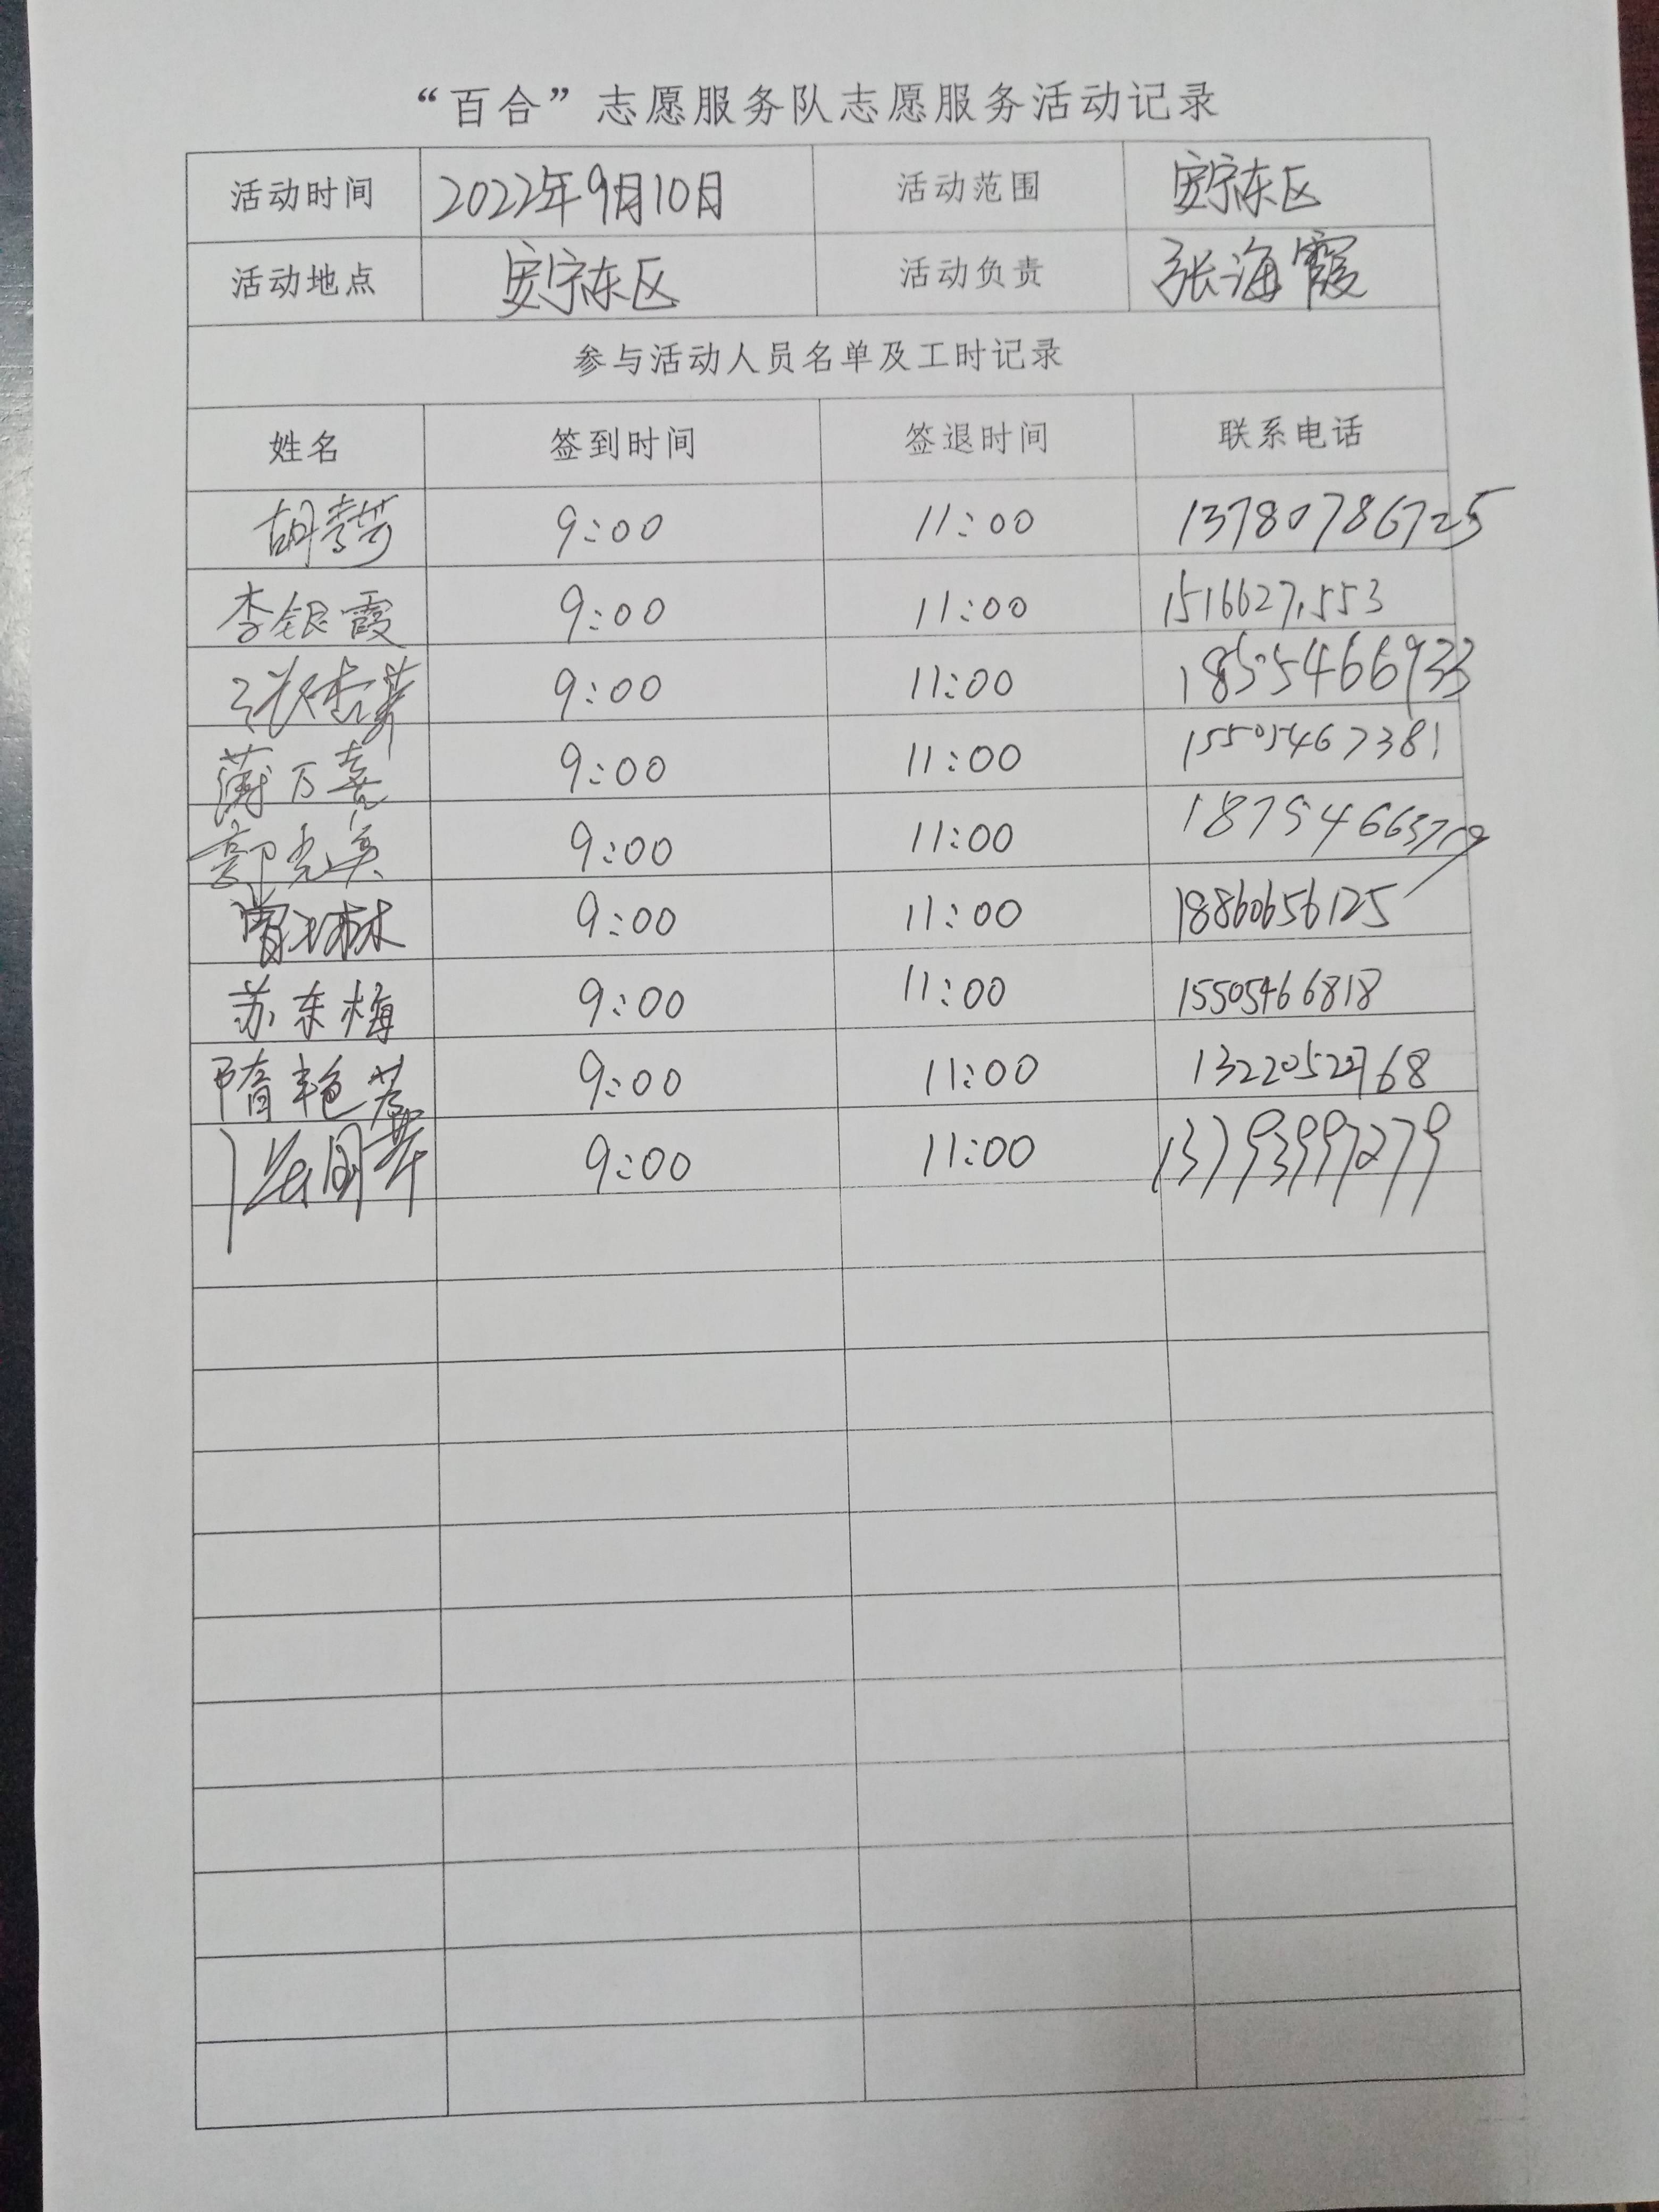 “百合”志愿服务队志愿服务活动记录
活动时间 2022年9月10日 活动范围 安宁东区
活动地点 安宁东区 活动负责 张海霞
参与活动人员名单及工时记录
姓名 签到时间 签退时间 联系电话
9:00 11:00 13780786725
李银霞 9:00 11:00
9:00 11:00 18554466933
薄万喜 9:00 11:00 15505467381
郭光英 9:00 11:00
9:00 11:00 18860656125
苏东梅 9:00 11:00 15505466818
隋艳 9:00 11:00
9:00 11:00 13793997279